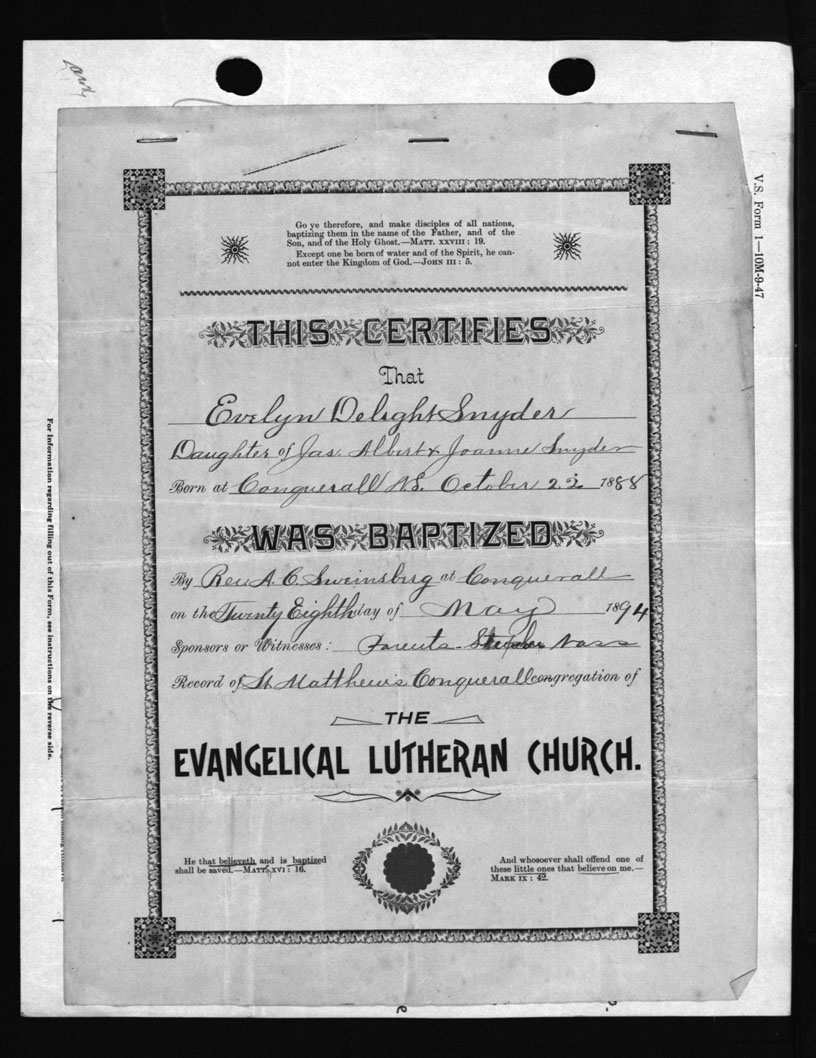 Go ye therefore, and make disciples of all nations,
baptizing them in the name of the Father, and of the
Son, and of the Holy Ghost.—MATT. XXVIII : 19.
Except one be born of water and of the Spirit, he can-
not enter the Kingdom of God.—JOHN III : 5.
THIS CERTIFIES
That
Evelyn Delight Snyder
Daughter of Jas. Albert & Joanne Snyder
Born at Conquerall N.S. October 22 1888
WAS BAPTIZED
By Rev. A. C. Sweinsbrg at Conquerall
on the Twenty Eighth day of May 1894
Sponsors or Witnesses: Parents
Record of St. Matthew's Conquerall congregation of
THE
EVANGELICAL LUTHERAN CHURCH.
He that believeth and is baptized
shall be saved.—MATT. XVI : 16.
And whosoever shall offend one of
these little ones that believe on me.—
MARK IX : 42.
V.S. Form 1—10M-9-47
For Information regarding filling out of this Form, see instructions on the reverse side.